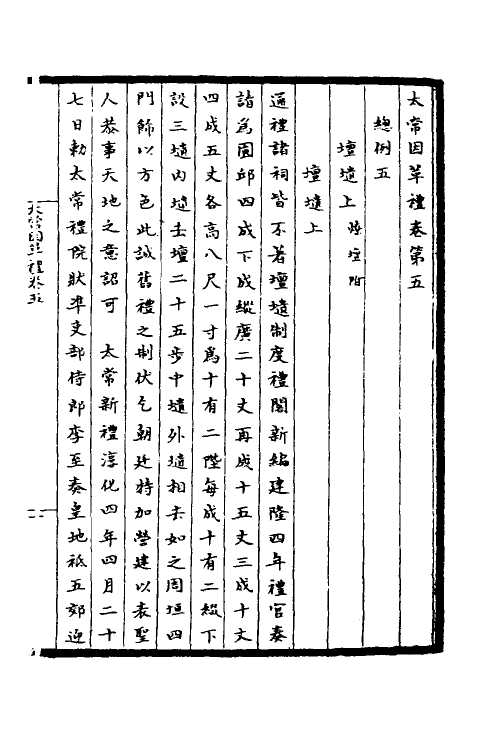 太常因革禮卷第五
總例五
壇壝上
壇壝上
通禮諸祠皆不著壇壝制度禮閣新編建隆四年禮官奏
請爲圜邱四成下成縱廣二十丈再成十五丈三成十丈
四成五丈各高八尺一寸爲十有二陛每成十有二綴下
設三壝内壝去壇二十五步中壝外壝相去如之周垣四
門飾以方色此誠舊禮之制伏乞朝廷特加營建以表聖
人恭事天地之意詔可 太常新禮淳化四年四月二十
七日勅太常禮院狀準吏部侍郎李至奏皇地祗五郊迎
太常因革禮卷五
一